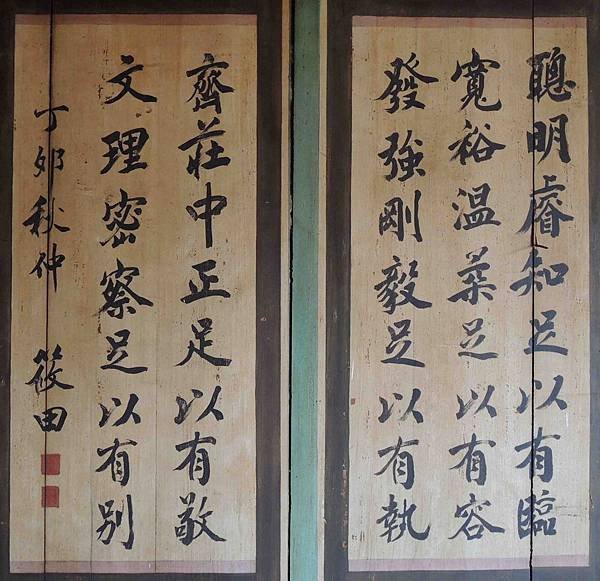 聰明睿知足以有臨
寬裕温柔足以有容
發強剛毅足以有執
齊莊中正足以有敬
文理密察足以有別
丁卯秋仲 筱田